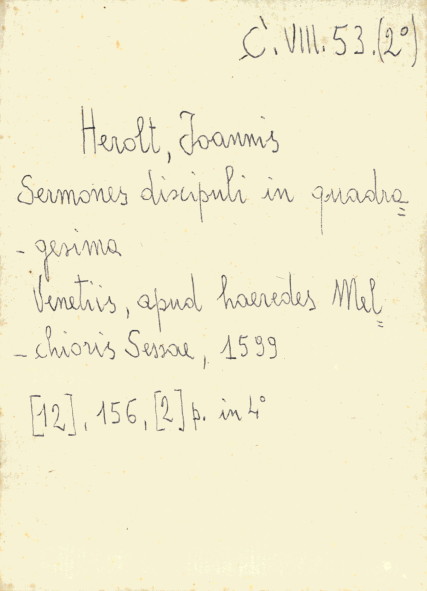 C. VIII. 53.(2°)
Herolt, Joannis
Sermones discipuli in quadra=
- gesima
Venetiis, apud haeredes Mel=
- chioris Sessae, 1599
[12], 156, [2] p. in 4°